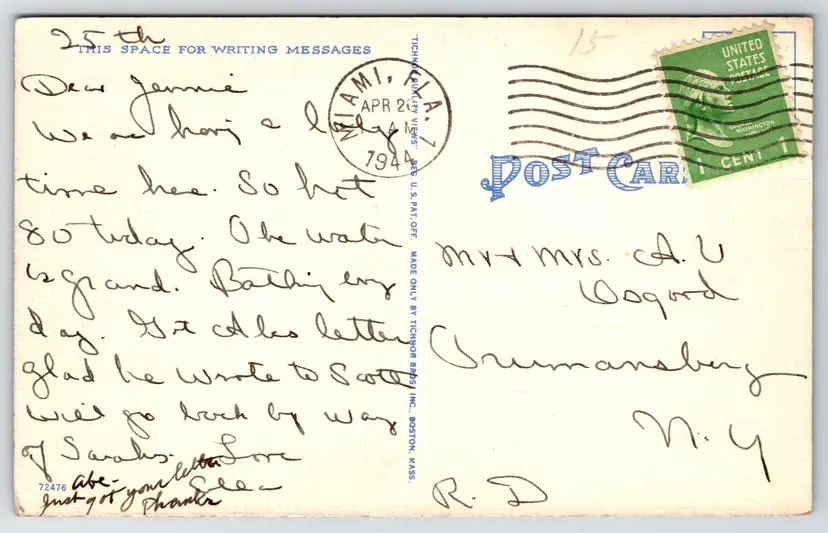 25th
THIS SPACE FOR WRITING MESSAGES
Dear Jennie
We are having a lovely
time here. So hot
80 today. The water
is grand. Bathing every
day. Got Abes letter
glad he wrote to Scott
Will go back by way
of Sarahs. Love
Ella
Abe-
Just got your letter
Thanks
72476
"TICHNOR QUALITY VIEWS" REG. U.S. PAT. OFF. MADE ONLY BY TICHNOR BROS. INC., BOSTON, MASS.
MIAMI, FLA. 1
APR 26
AM
1944
15
UNITED
STATES
POSTAGE
WASHINGTON
1 CENT 1
POST CAR
Mr + Mrs. A. U
Osgood
Trumansberg
N. Y
R. D